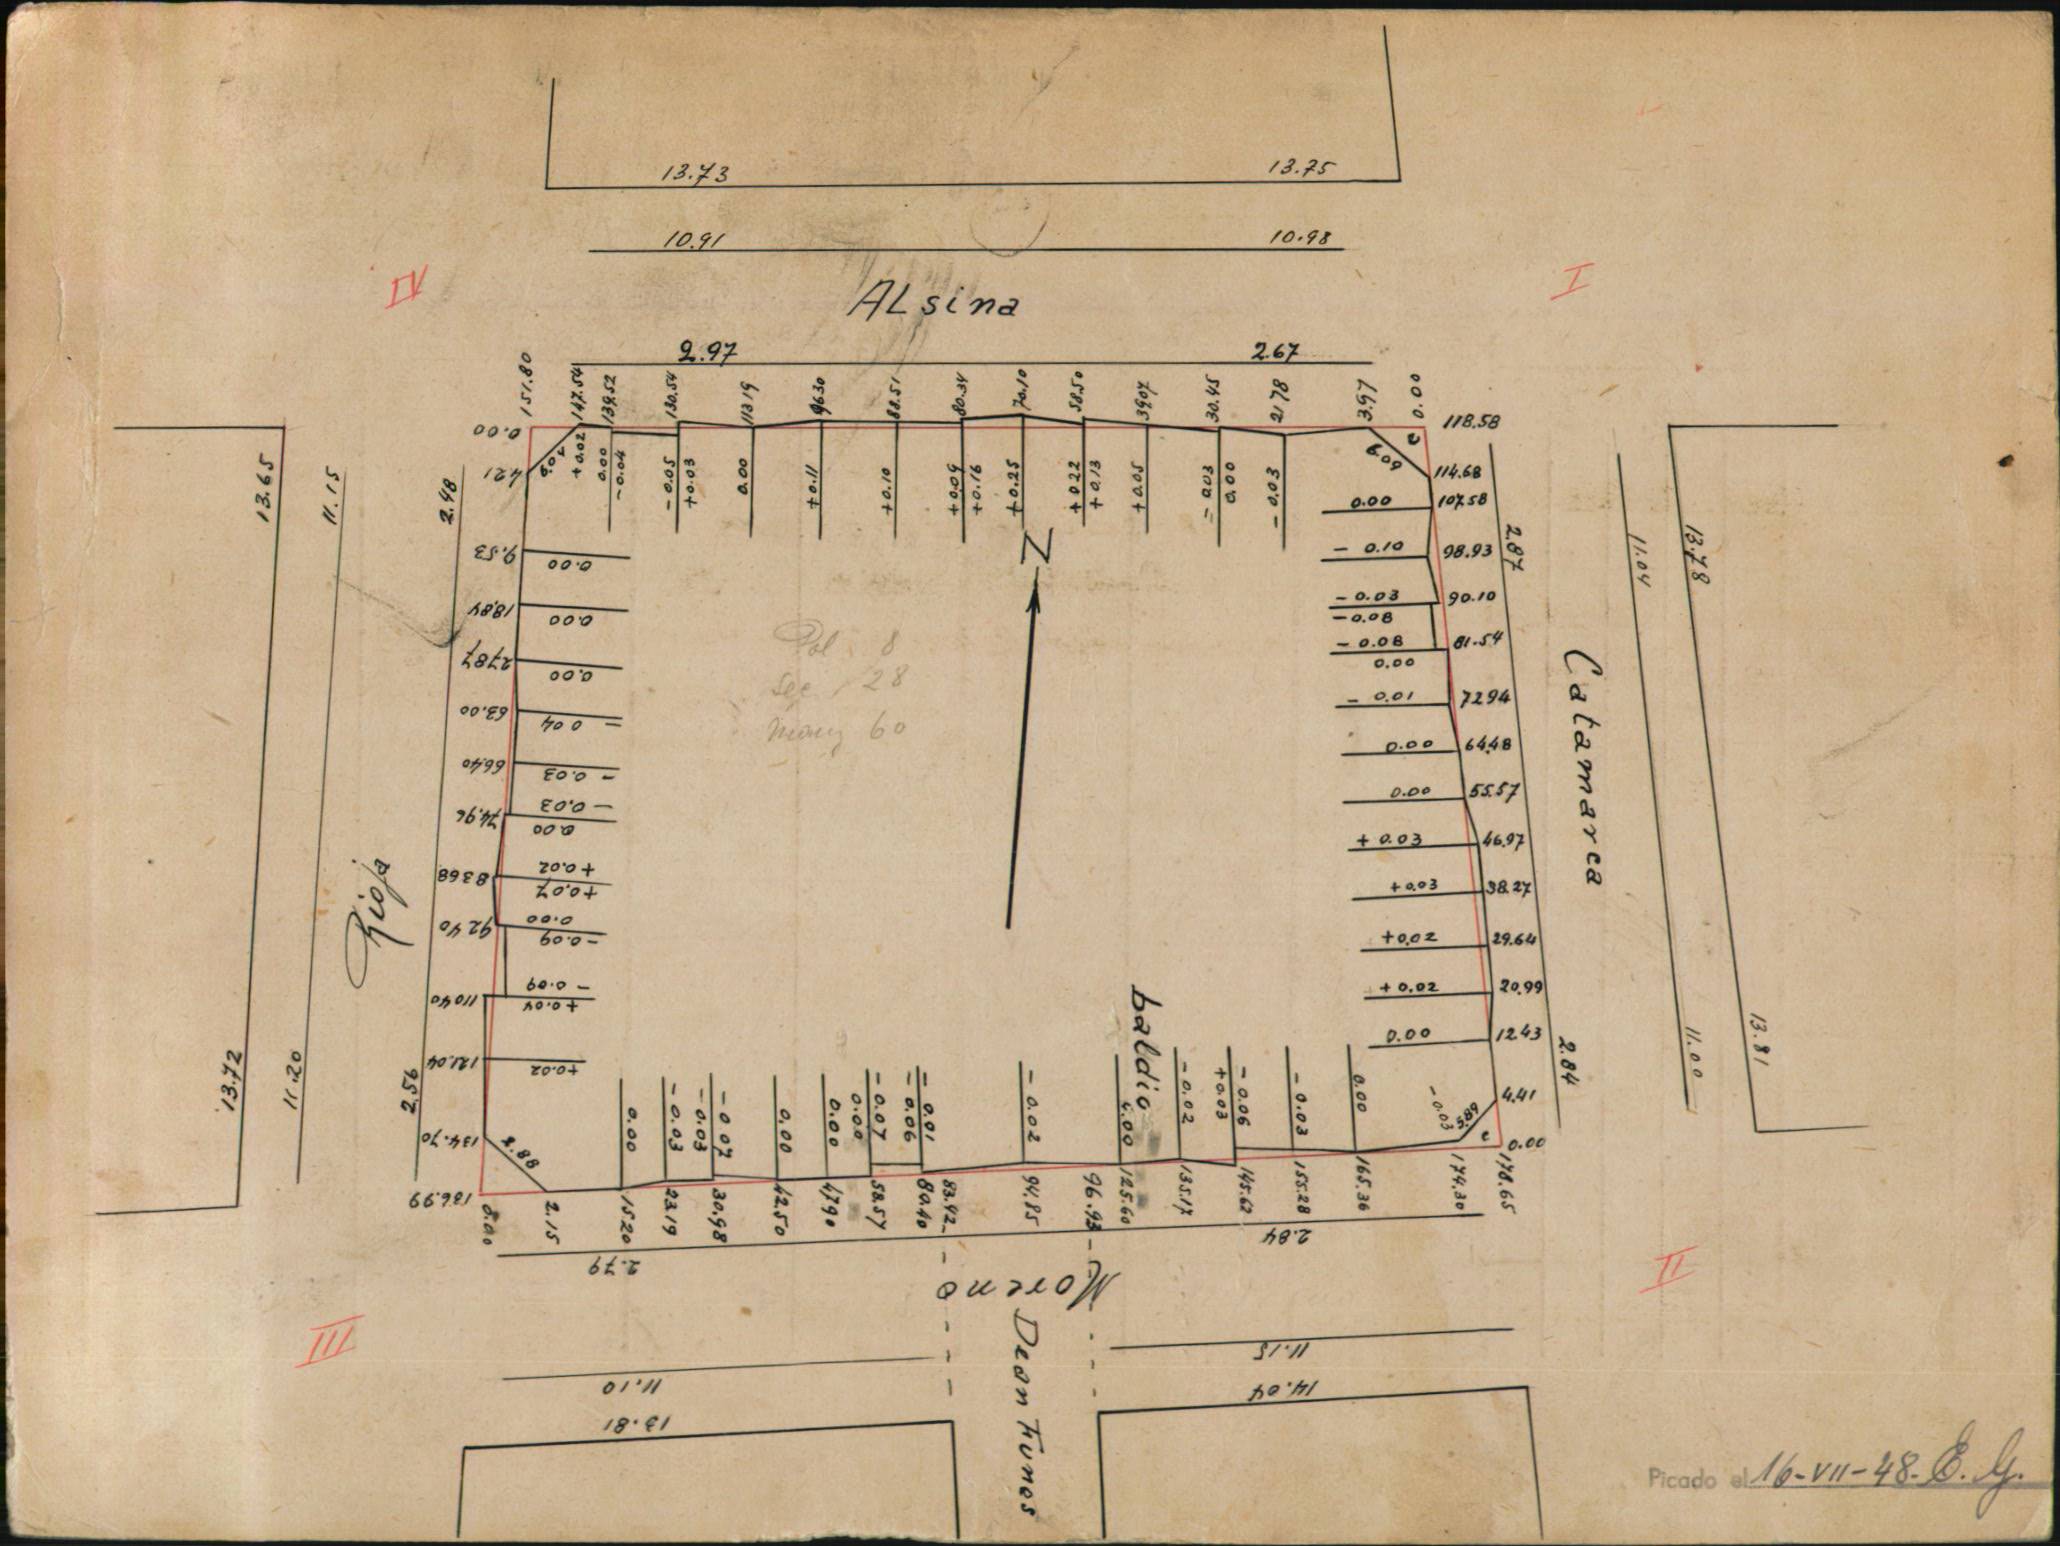 13.73
13.75
10.91
10.98
IV
I
ALsina
2.97
2.67
151.80
147.54
139.52
130.54
113.19
96.30
88.51
80.34
70.10
58.50
39.07
30.45
21.78
3.97
0.00
0.00
4.21
6.02
+0.02
0.00
-0.04
-0.05
+0.03
0.00
+0.11
+0.10
+0.09
+0.16
+0.25
+0.22
+0.13
+0.05
-0.03
0.00
-0.03
6.09
e
N
118.58
114.68
107.58
98.93
90.10
81.54
72.94
64.48
55.57
46.97
38.27
29.64
20.99
12.43
4.41
0.00
0.00
- 0.10
- 0.03
- 0.08
- 0.08
0.00
- 0.01
0.00
0.00
+ 0.03
+0.03
+0.02
+0.02
0.00
- 0.03
5.89
e
2.87
2.84
Catamarca
11.04
11.00
13.78
13.81
13.65
13.72
11.15
11.20
Rioja
2.48
2.56
9.53
18.84
27.87
63.00
66.40
74.96
83.68
92.40
110.40
121.04
134.70
136.99
0.00
0.00
0.00
- 0.04
- 0.03
- 0.03
0.00
+0.02
+0.07
0.00
-0.09
- 0.09
+0.04
+0.02
Pol. 8
Sec. 28
Manz 60
baldio
0.00
- 0.03
- 0.03
- 0.07
0.00
0.00
0.00
- 0.07
- 0.06
- 0.01
- 0.02
- 0.02
+0.03
- 0.06
- 0.03
0.00
0.00
2.15
15.20
23.19
30.98
42.50
47.90
58.57
80.40
83.92
94.85
96.93
125.60
135.17
145.62
155.28
165.36
174.30
178.65
2.79
2.84
Moreno
Dean Funes
III
II
11.10
11.15
13.81
14.04
Picado el 16-VII-48. E. G.